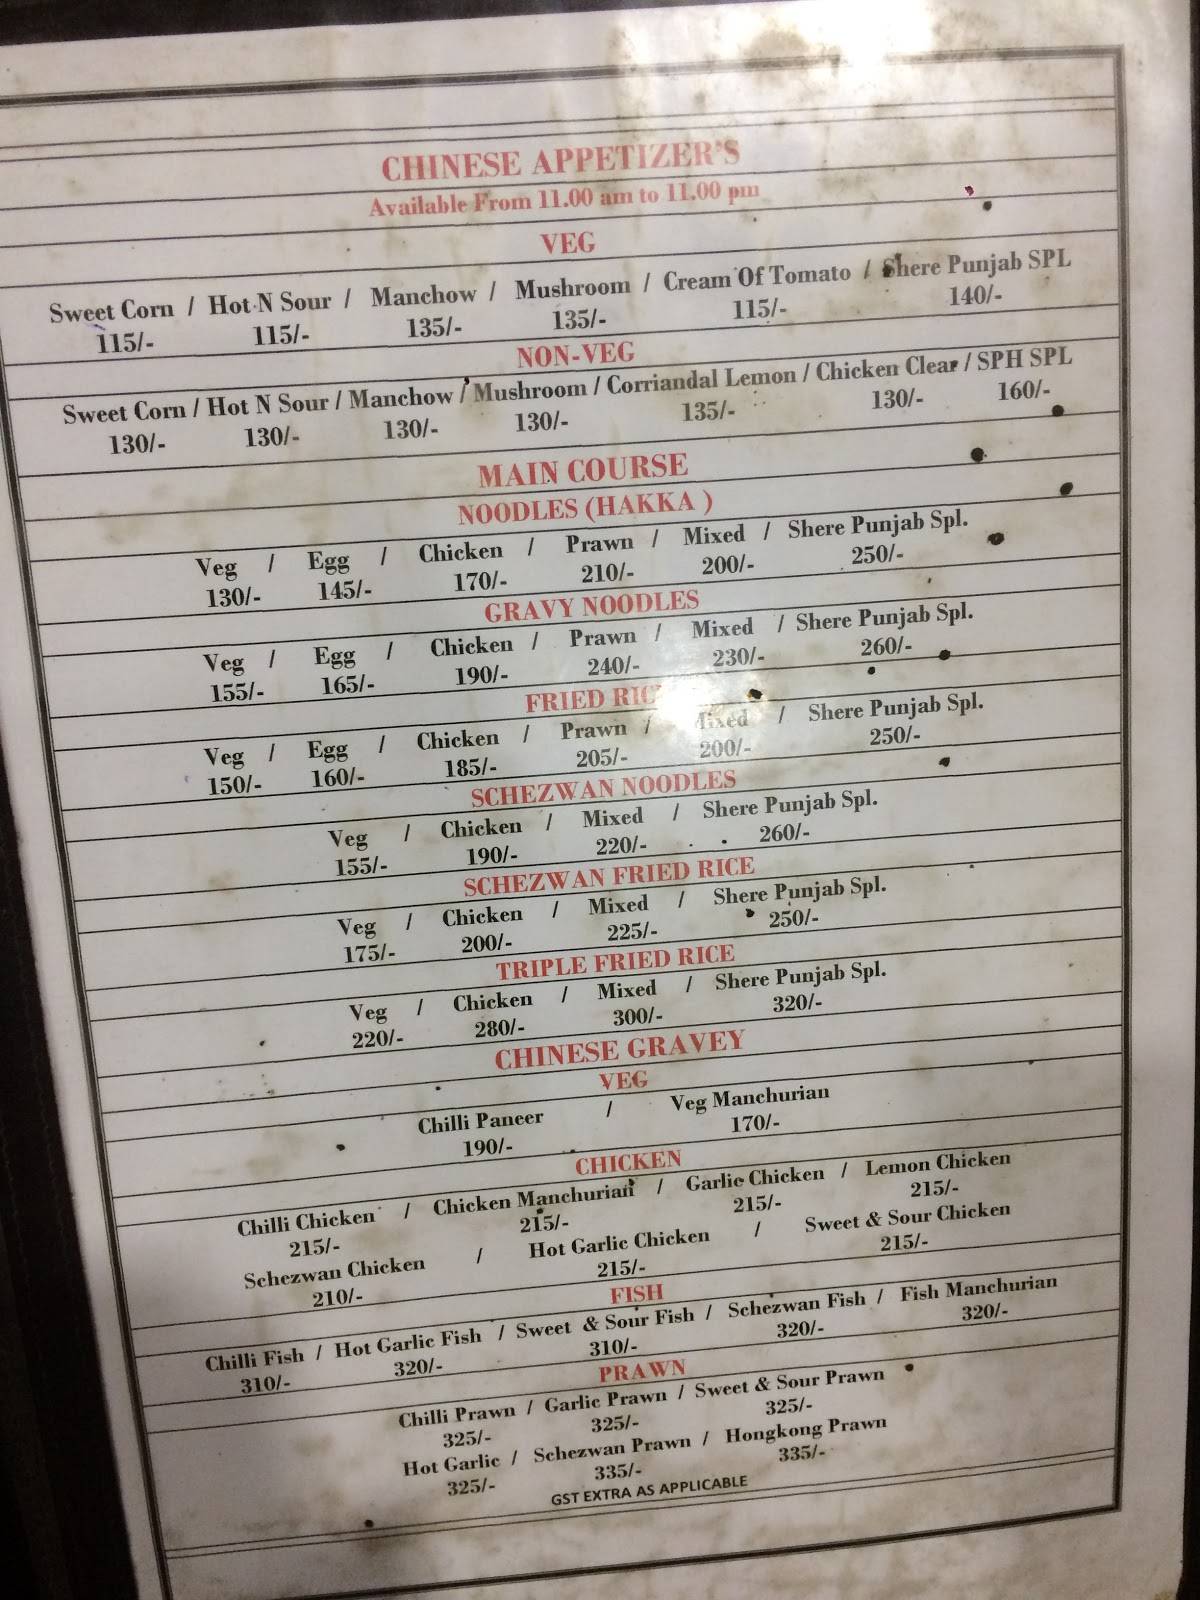 CHINESE APPETIZER'S
Available From 11.00 am to 11.00 pm
VEG
Sweet Corn / Hot N Sour / Manchow / Mushroom / Cream Of Tomato / Shere Punjab SPL
115/- 115/- 135/- 135/- 115/- 140/-
NON-VEG
Sweet Corn / Hot N Sour / Manchow / Mushroom / Corriandal Lemon / Chicken Clear / SPH SPL
130/- 130/- 130/- 130/- 135/- 130/- 160/-
MAIN COURSE
NOODLES (HAKKA )
Veg / Egg / Chicken / Prawn / Mixed / Shere Punjab Spl.
130/- 145/- 170/- 210/- 200/- 250/-
GRAVY NOODLES
Veg / Egg / Chicken / Prawn / Mixed / Shere Punjab Spl.
155/- 165/- 190/- 240/- 230/- 260/-
FRIED RICE
Veg / Egg / Chicken / Prawn / Mixed / Shere Punjab Spl.
150/- 160/- 185/- 205/- 200/- 250/-
SCHEZWAN NOODLES
Veg / Chicken / Mixed / Shere Punjab Spl.
155/- 190/- 220/- 260/-
SCHEZWAN FRIED RICE
Veg / Chicken / Mixed / Shere Punjab Spl.
175/- 200/- 225/- 250/-
TRIPLE FRIED RICE
Veg / Chicken / Mixed / Shere Punjab Spl.
220/- 280/- 300/- 320/-
CHINESE GRAVEY
VEG
Chilli Paneer / Veg Manchurian
190/- 170/-
CHICKEN
Chilli Chicken / Chicken Manchurian / Garlic Chicken / Lemon Chicken
215/- 215/- 215/- 215/-
Schezwan Chicken / Hot Garlic Chicken / Sweet & Sour Chicken
210/- 215/- 215/-
FISH
Chilli Fish / Hot Garlic Fish / Sweet & Sour Fish / Schezwan Fish / Fish Manchurian
310/- 320/- 310/- 320/- 320/-
PRAWN
Chilli Prawn / Garlic Prawn / Sweet & Sour Prawn
325/- 325/- 325/-
Hot Garlic / Schezwan Prawn / Hongkong Prawn
325/- 335/- 335/-
GST EXTRA AS APPLICABLE